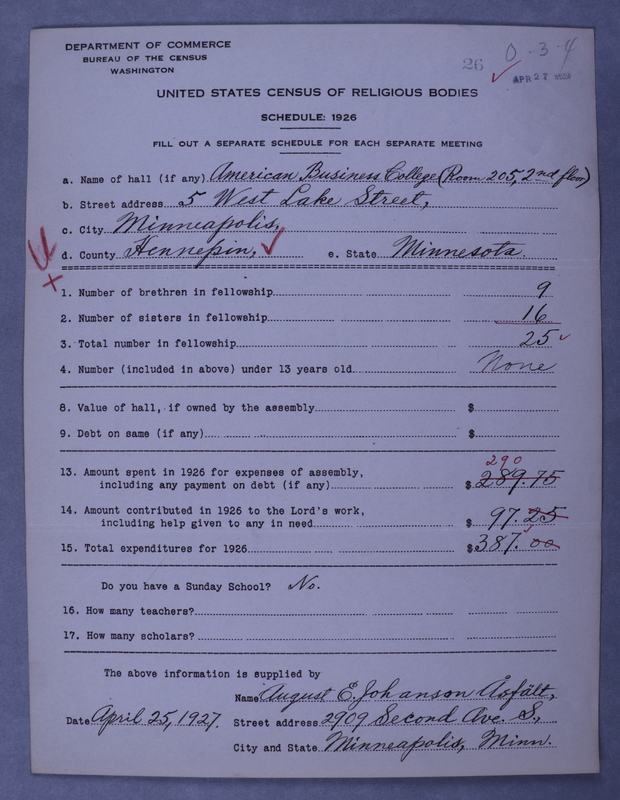 DEPARTMENT OF COMMERCE
BUREAU OF THE CENSUS
WASHINGTON
26 0-3-4
APR 27
UNITED STATES CENSUS OF RELIGIOUS BODIES
SCHEDULE: 1926
FILL OUT A SEPARATE SCHEDULE FOR EACH SEPARATE MEETING
a. Name of hall (if any) American Business College (Room 205, 2nd floor)
b. Street address 5 West Lake Street,
c. City Minneapolis,
d. County Hennepin, e. State Minnesota.
1. Number of brethren in fellowship 9
2. Number of sisters in fellowship 16
3. Total number in fellowship 25
4. Number (included in above) under 13 years old None
8. Value of hall, if owned by the assembly $
9. Debt on same (if any) $
290
13. Amount spent in 1926 for expenses of assembly,
including any payment on debt (if any) $ 289.75
14. Amount contributed in 1926 to the Lord's work,
including help given to any in need $ 97.25
15. Total expenditures for 1926 $ 387.00
Do you have a Sunday School? No.
16. How many teachers?
17. How many scholars?
The above information is supplied by
Name August E. Johanson Åsfält,
Date April 25, 1927. Street address 2909 Second Ave. S.,
City and State Minneapolis, Minn.